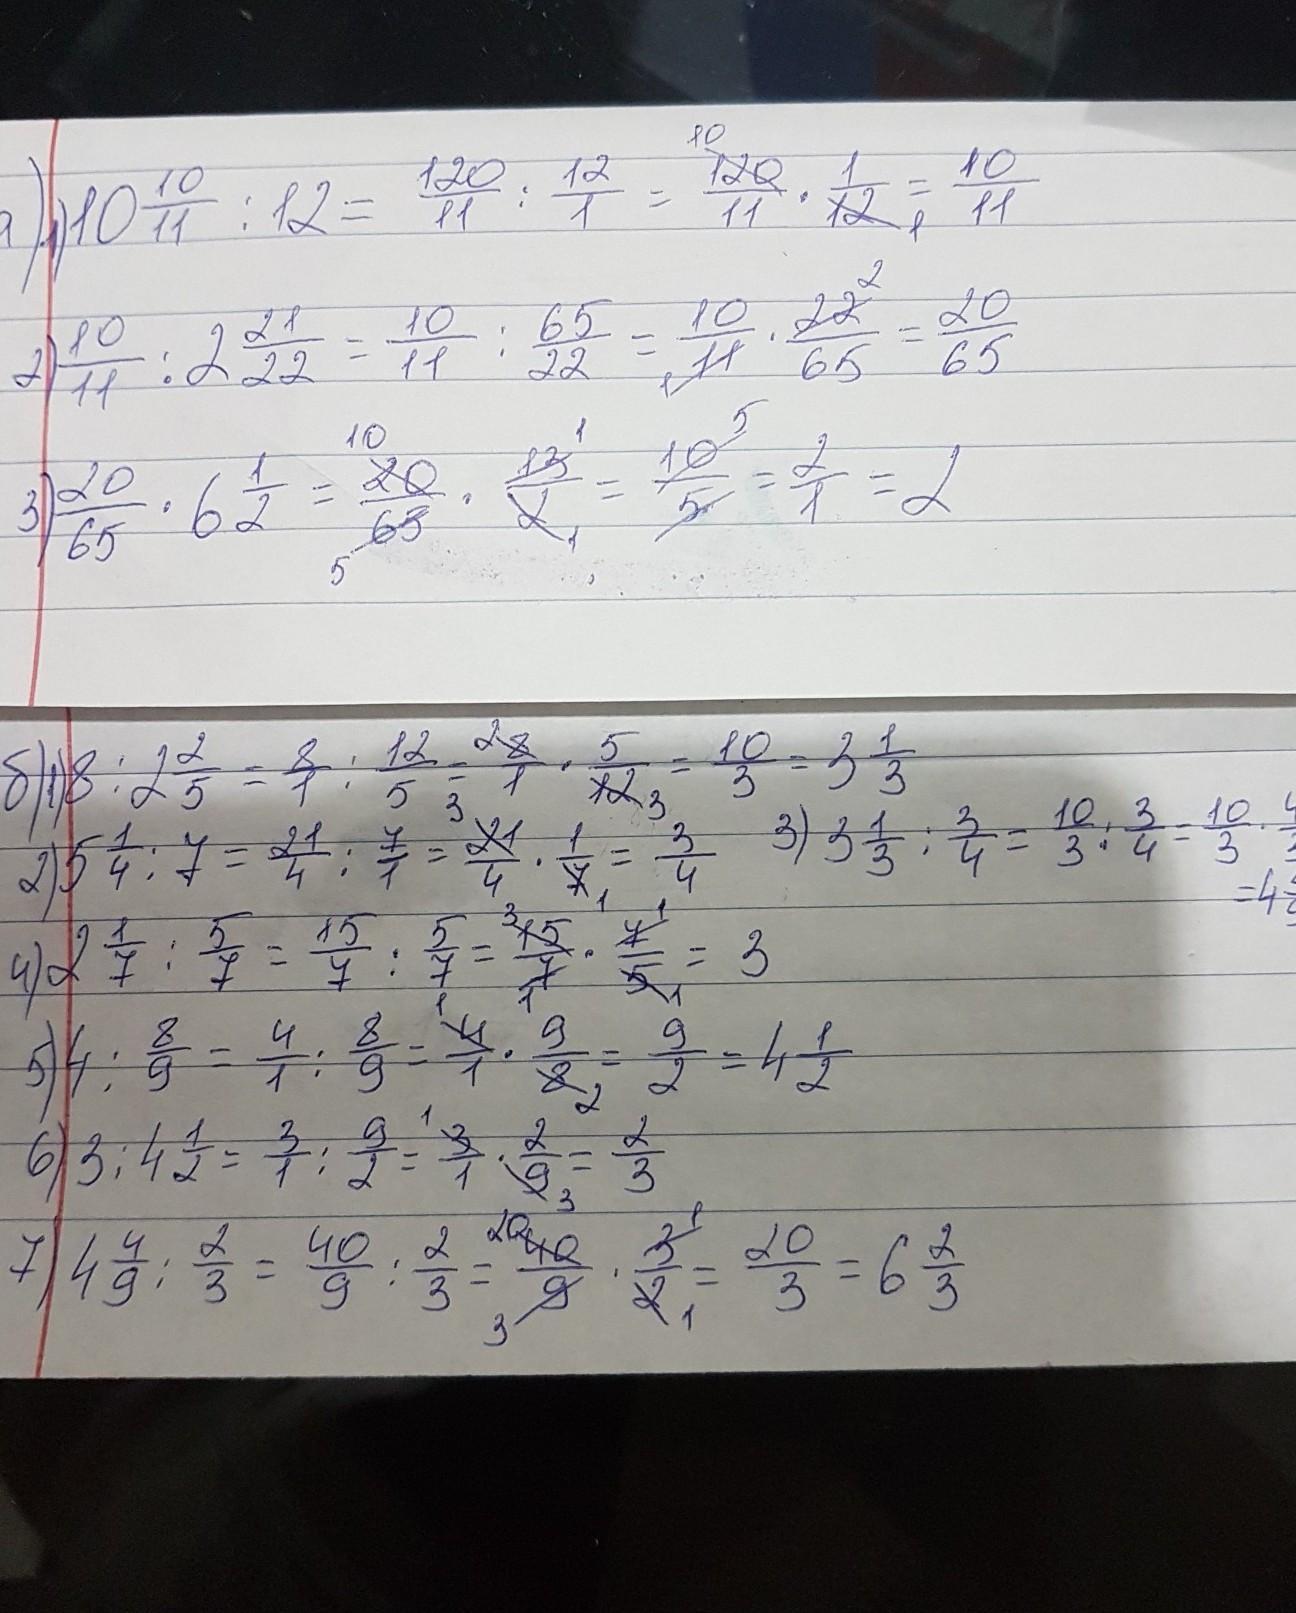 а) 1) 10 10/11 : 12 = 120/11 : 12/1 = 120/11 · 1/12 = 10/11
2) 10/11 : 2 21/22 = 10/11 : 65/22 = 10/11 · 22/65 = 20/65
3) 20/65 · 6 1/2 = 20/65 · 13/2 = 10/5 = 2/1 = 2
б) 1) 8 : 2 2/5 = 8/1 : 12/5 = 8/1 · 5/12 = 10/3 = 3 1/3
2) 5 1/4 : 7 = 21/4 : 7/1 = 21/4 · 1/7 = 3/4
3) 3 1/3 : 3/4 = 10/3 : 3/4 = 10/3 ·
= 4
4) 2 1/7 : 5/7 = 15/7 : 5/7 = 15/7 · 7/5 = 3
5) 4 : 8/9 = 4/1 : 8/9 = 4/1 · 9/8 = 9/2 = 4 1/2
6) 3 : 4 1/2 = 3/1 : 9/2 = 3/1 · 2/9 = 2/3
7) 4 4/9 : 2/3 = 40/9 : 2/3 = 40/9 · 3/2 = 20/3 = 6 2/3